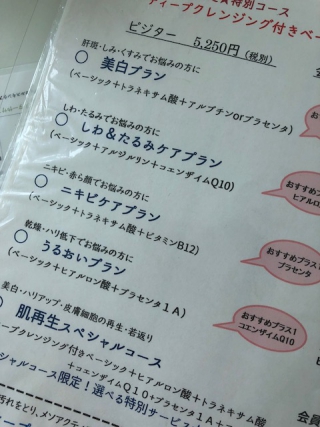 特別コース
ディープクレンジング付きベー
ビジター 5,250円(税別)
肝斑・しみ・くすみでお悩みの方に
○ 美白プラン
(ベーシック+トラネキサム酸+アルブチンorプラセンタ)
しわ・たるみでお悩みの方に
○ しわ&たるみケアプラン
(ベーシック+アルジルリン+コエンザイムQ10)
ニキビ・赤ら顔でお悩みの方に
○ ニキビケアプラン
(ベーシック+トラネキサム酸+ビタミンB12)
おすすめプ
ヒアルロ
乾燥・ハリ低下でお悩みの方に
○ うるおいプラン
(ベーシック+ヒアルロン酸+プラセンタ1A)
おすすめプラス1
プラセンタ
美白・ハリアップ・皮膚細胞の再生・若返り
○ 肌再生スペシャルコース
ープクレンジング付きベーシック+ヒアルロン酸+トラネキサム酸
+コエンザイムQ10+プラセンタ1A+
おすすめプラス1
コエンザイムQ10
会員
シャルコース限定!選べる特別サービス
汚れをとり、メソアクティ